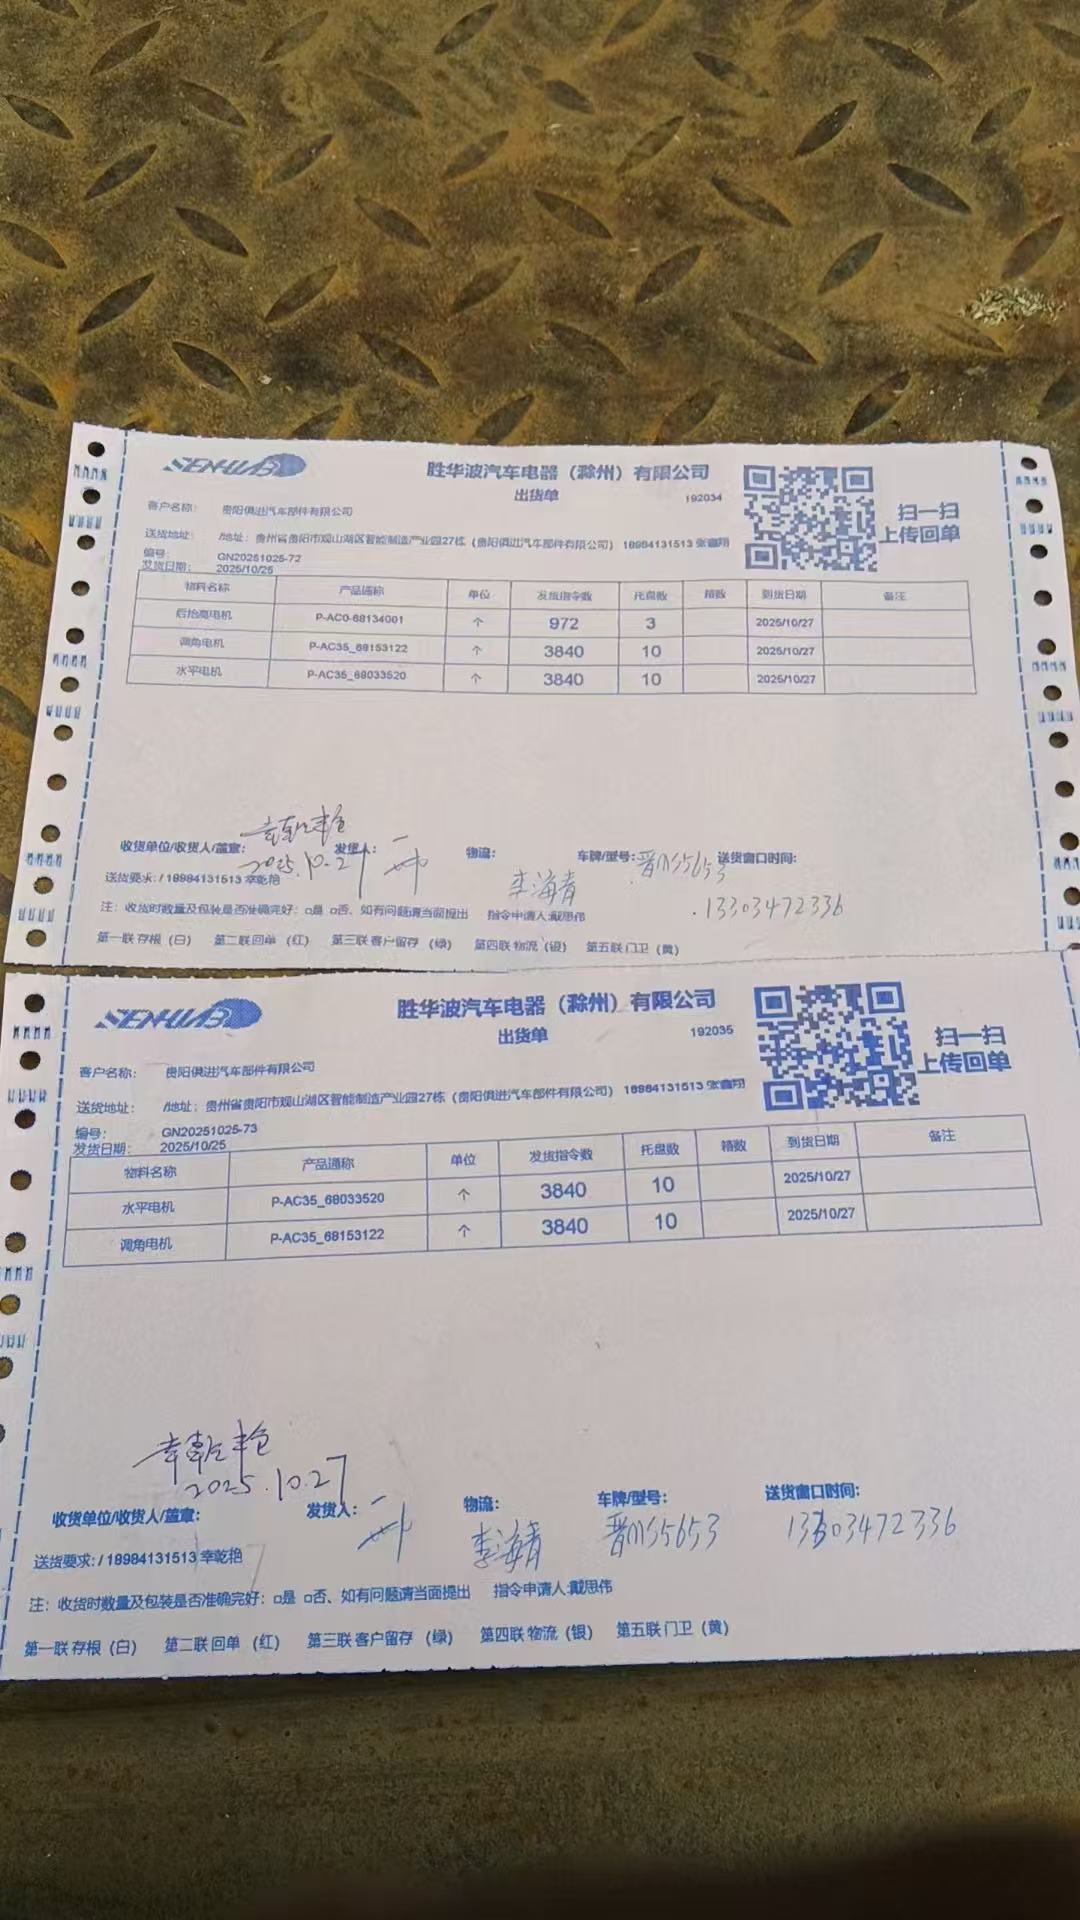 SENHWAB
胜华波汽车电器（滁州）有限公司
出货单
192034
扫一扫
上传回单
客户名称： 贵阳俱进汽车部件有限公司
送货地址： /地址：贵州省贵阳市观山湖区智能制造产业园27栋（贵阳俱进汽车部件有限公司） 18984131513 张鑫翔
编号： GN20251025-72
发货日期： 2025/10/25
物料名称 产品通称 单位 发货指令数 托盘数 箱数 到货日期 备注
后抬高电机 P-AC0-68134001 个 972 3 2025/10/27
调角电机 P-AC35_68153122 个 3840 10 2025/10/27
水平电机 P-AC35_68033520 个 3840 10 2025/10/27
幸乾艳
收货单位/收货人/盖章： 发货人： 物流： 车牌/型号： 送货窗口时间：
2025.10.27 李海青 13303472336
送货要求：/ 18984131513 幸乾艳
注：收货时数量及包装是否准确完好：□是 □否、如有问题请当面提出 指令申请人:戴思伟
第一联 存根（白） 第二联 回单（红） 第三联 客户留存（绿） 第四联 物流（银） 第五联 门卫（黄）
SENHWAB
胜华波汽车电器（滁州）有限公司
出货单
192035
扫一扫
上传回单
客户名称： 贵阳俱进汽车部件有限公司
送货地址： /地址：贵州省贵阳市观山湖区智能制造产业园27栋（贵阳俱进汽车部件有限公司） 18984131513 张鑫翔
编号： GN20251025-73
发货日期： 2025/10/25
物料名称 产品通称 单位 发货指令数 托盘数 箱数 到货日期 备注
水平电机 P-AC35_68033520 个 3840 10 2025/10/27
调角电机 P-AC35_68153122 个 3840 10 2025/10/27
幸乾艳
2025.10.27
收货单位/收货人/盖章： 发货人： 物流： 车牌/型号： 送货窗口时间：
李海青 13303472336
送货要求：/ 18984131513 幸乾艳
注：收货时数量及包装是否准确完好：□是 □否、如有问题请当面提出 指令申请人:戴思伟
第一联 存根（白） 第二联 回单（红） 第三联 客户留存（绿） 第四联 物流（银） 第五联 门卫（黄）